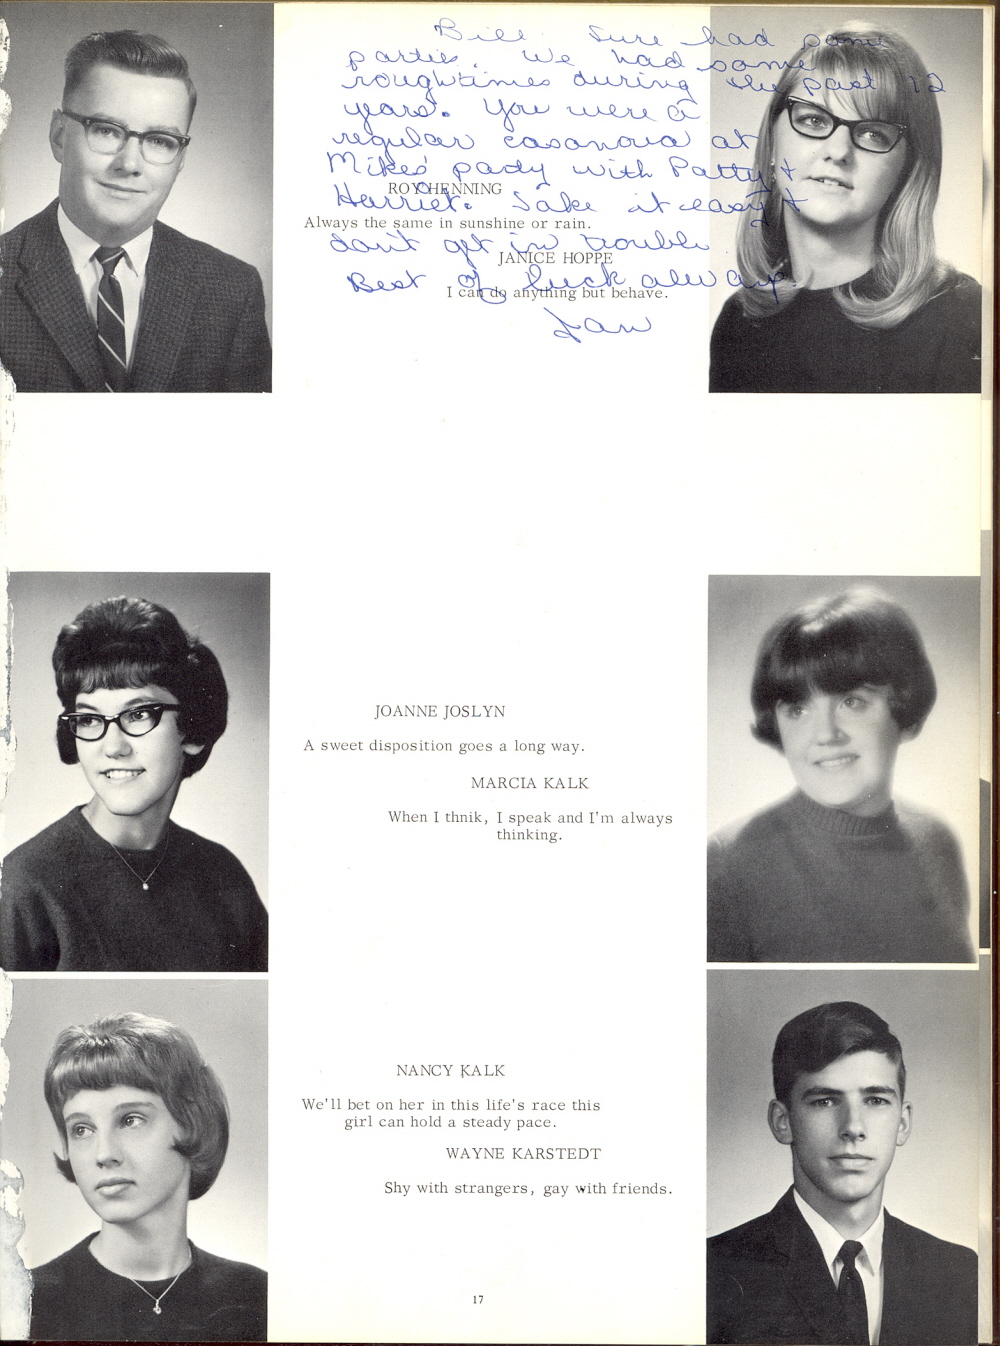 Bill Sure had some
parties. We had some
roughtimes during the past 12
years. You were a
regular casanova at
Mike's party with Patty +
ROY HENNING
Harriet. Take it easy +
Always the same in sunshine or rain.
don't get in trouble
JANICE HOPPE
Best of luck always.
I can do anything but behave.
Jan
JOANNE JOSLYN
A sweet disposition goes a long way.
MARCIA KALK
When I thnik, I speak and I'm always
thinking.
NANCY KALK
We'll bet on her in this life's race this
girl can hold a steady pace.
WAYNE KARSTEDT
Shy with strangers, gay with friends.
17